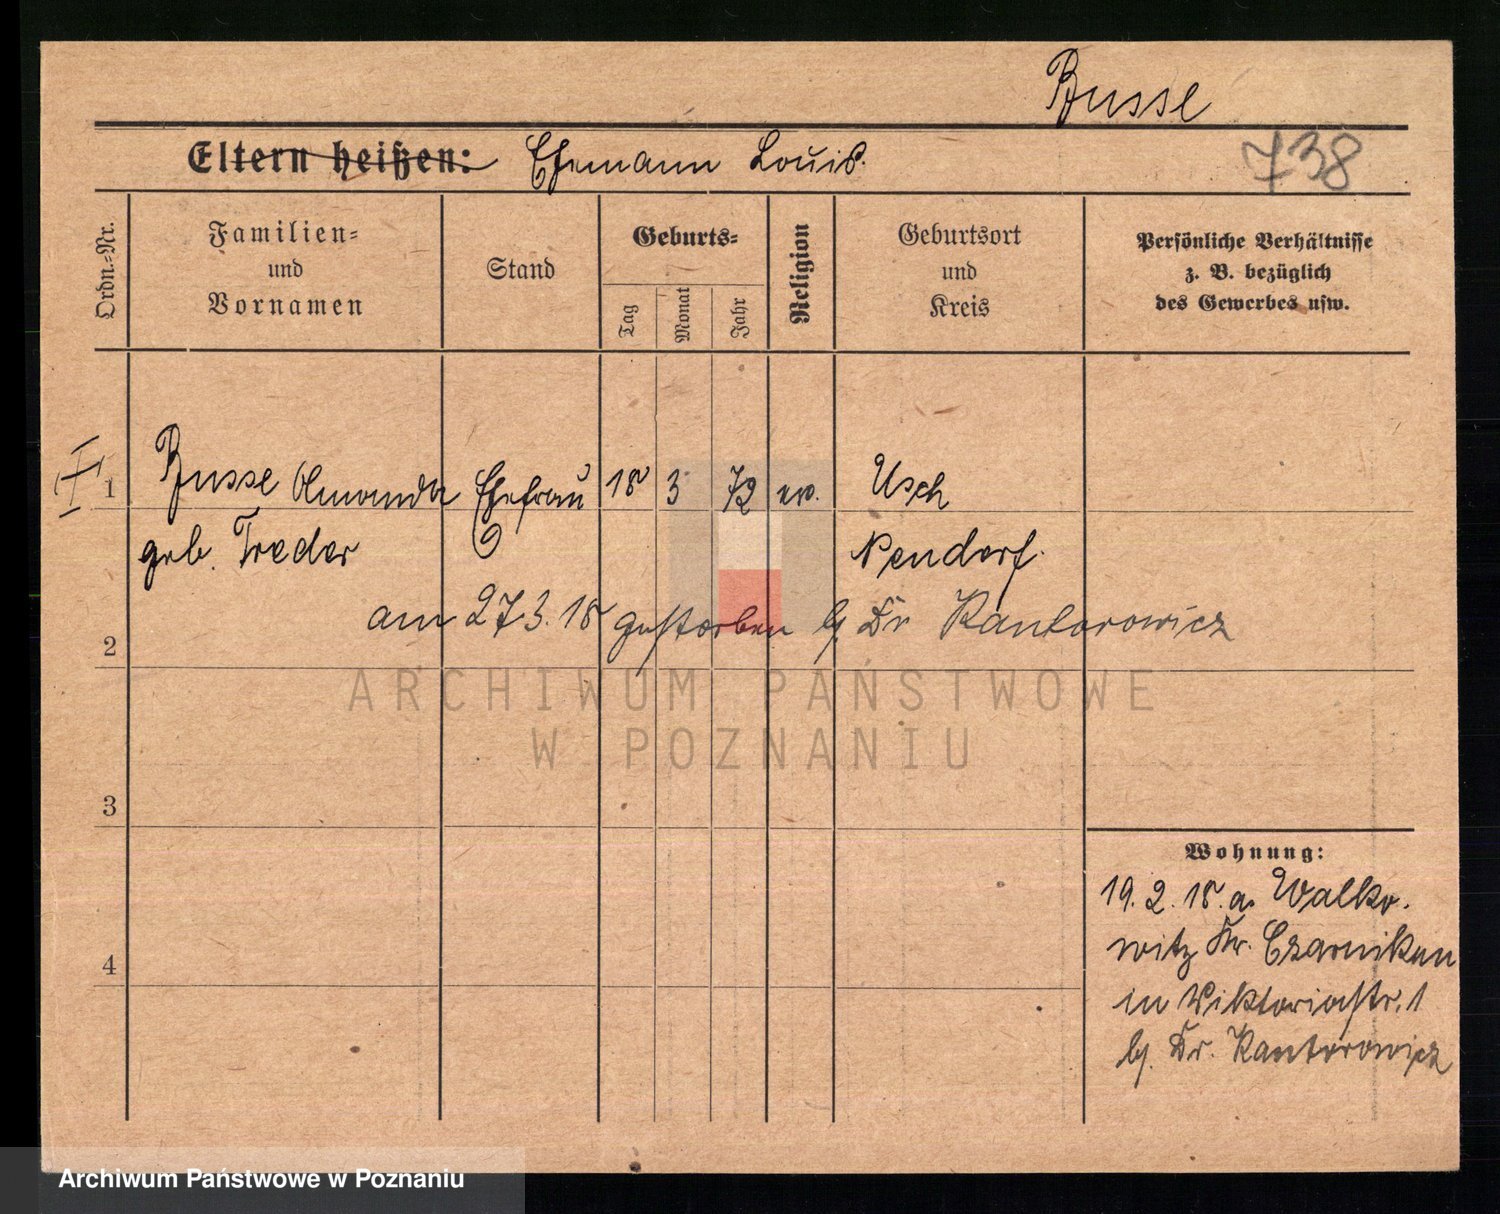 Busse
738
Eltern heißen: Ehemann Louis.
Ordn.-Nr.
Familien-
und
Vornamen
Stand
Geburts-
Tag
Monat
Jahr
Religion
Geburtsort
und
Kreis
Persönliche Verhältnisse
z. B. bezüglich
des Gewerbes usw.
1 Busse Amanda Ehefrau 18 3 72 ev. Usch
geb. Treder Neudorf.
am 27 3. 18 gestorben bj Dr Kantorowicz
2
3
4
Wohnung:
19. 2. 18. a. Walko-
witz Kr. Czarnikau
in Viktoriastr. 1
bj. Dr. Kantorowicz
ARCHIWUM PAŃSTWOWE
W POZNANIU
Archiwum Państwowe w Poznaniu